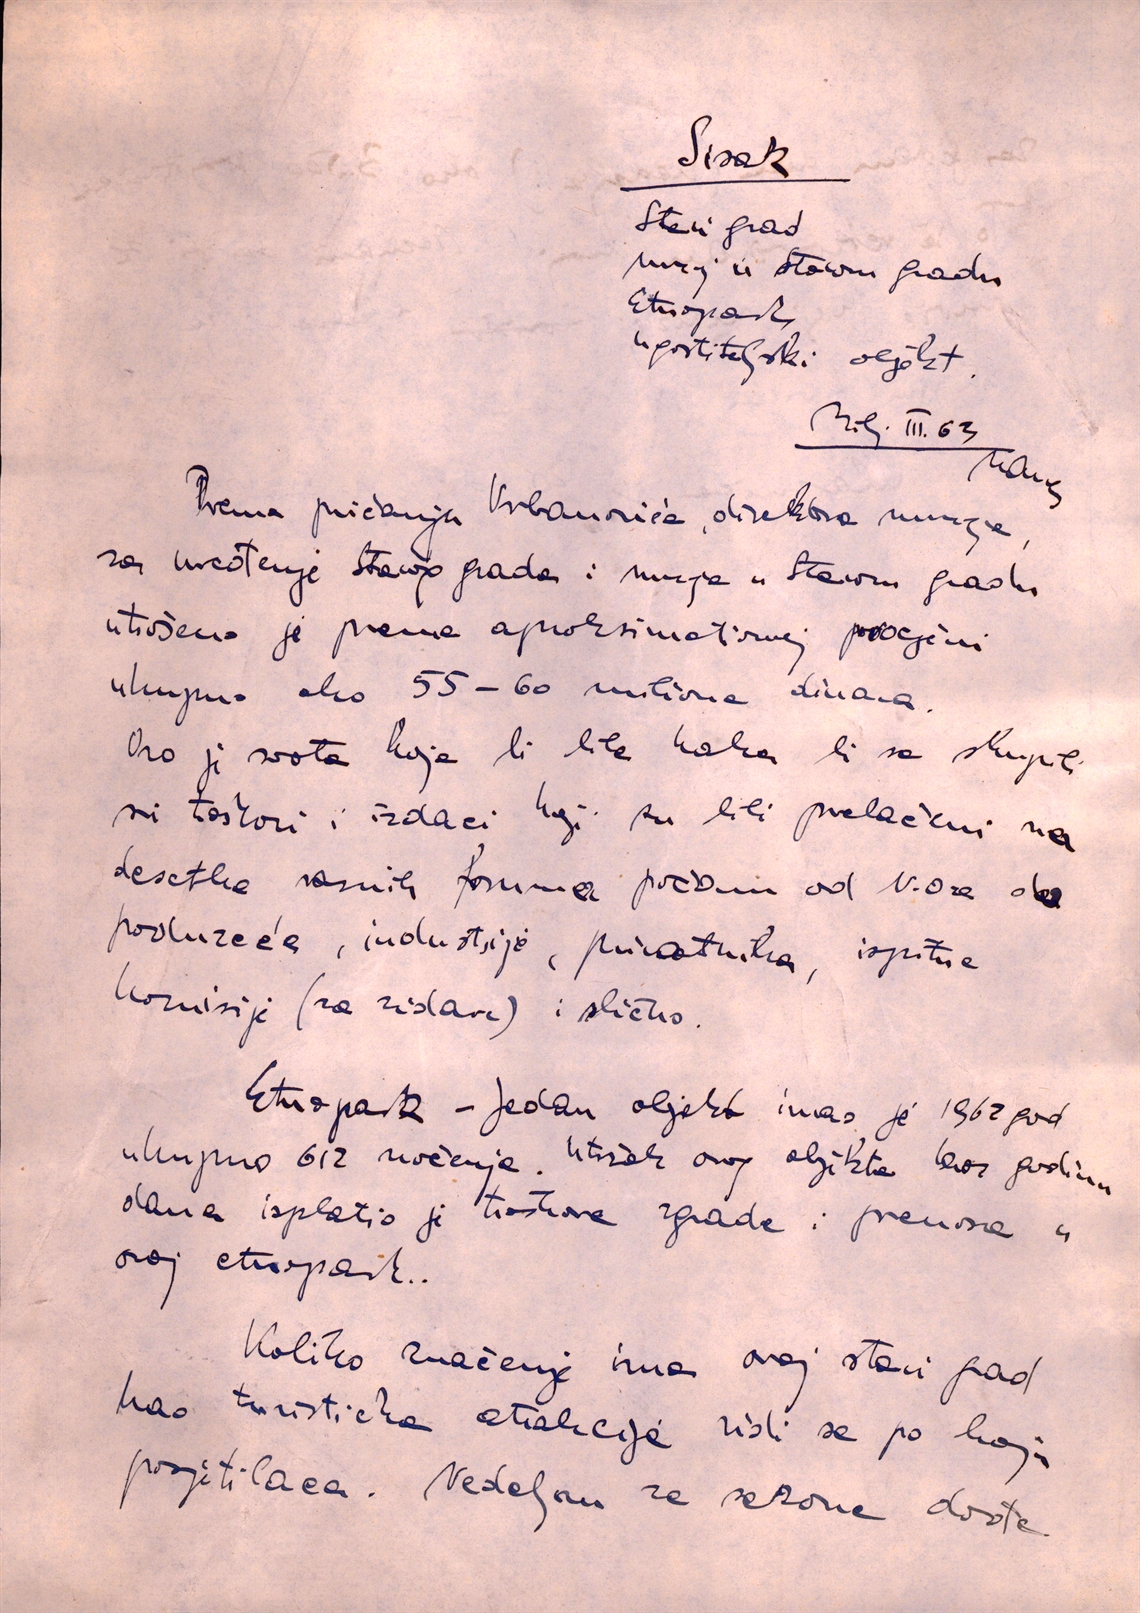 Sisak
Stari grad
muzej u Starom gradu
Etnopark
ugostiteljski objekt.
III. 63
Prema pričanju Vrbanovića, direktora muzeja,
za uređenje Starog grada i muzeja u Starom gradu
utrošeno je prema aproksimativnoj procjeni
ukupno oko 55-60 miliona dinara.
Ovo je svota koja bi bila kada bi se skupili
svi troškovi i izdaci koji su bili prelaćeni na
desetke raznih forma počam od N.O-a do
poduzeća, industrije, privatnika, ispitne
komisije (za zidare) i slično.
Etnopark - Jedan objekt imao je 1962 god
ukupno 612 noćenja. Utržak ovog objekta kroz godinu
dana isplatio je troškove zgrade i prenosa u
ovaj etnopark..
Koliko značenje ima ovaj stari grad
kao turistička atrakcija vidi se po broju
posjetilaca. Nedeljom za sezone dođe